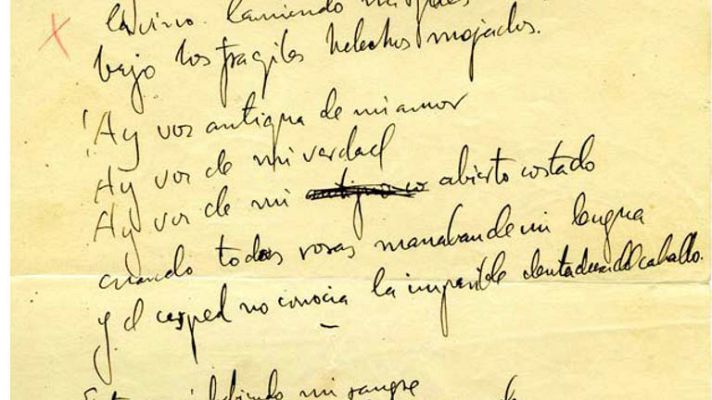 lamiendo mis pies
bajo los fragiles helechos mojados.
¡Ay voz antigua de mi amor
Ay voz de mi verdad
Ay voz de mi abierto costado
cuando todas rosas manaban de mi lengua
y el cesped no conocia la impasible dentadura del caballo.
bebiendo mi sangre